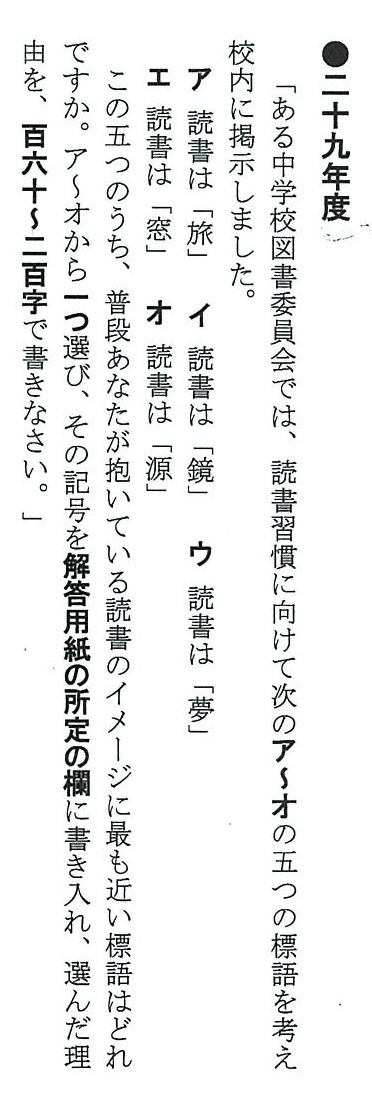 ●二十九年度
「ある中学校図書委員会では、読書習慣に向けて次のア～オの五つの標語を考え
校内に掲示しました。
ア 読書は「旅」 イ 読書は「鏡」 ウ 読書は「夢」
エ 読書は「窓」 オ 読書は「源」
この五つのうち、普段あなたが抱いている読書のイメージに最も近い標語はどれ
ですか。ア～オから一つ選び、その記号を解答用紙の所定の欄に書き入れ、選んだ理
由を、百六十～二百字で書きなさい。」